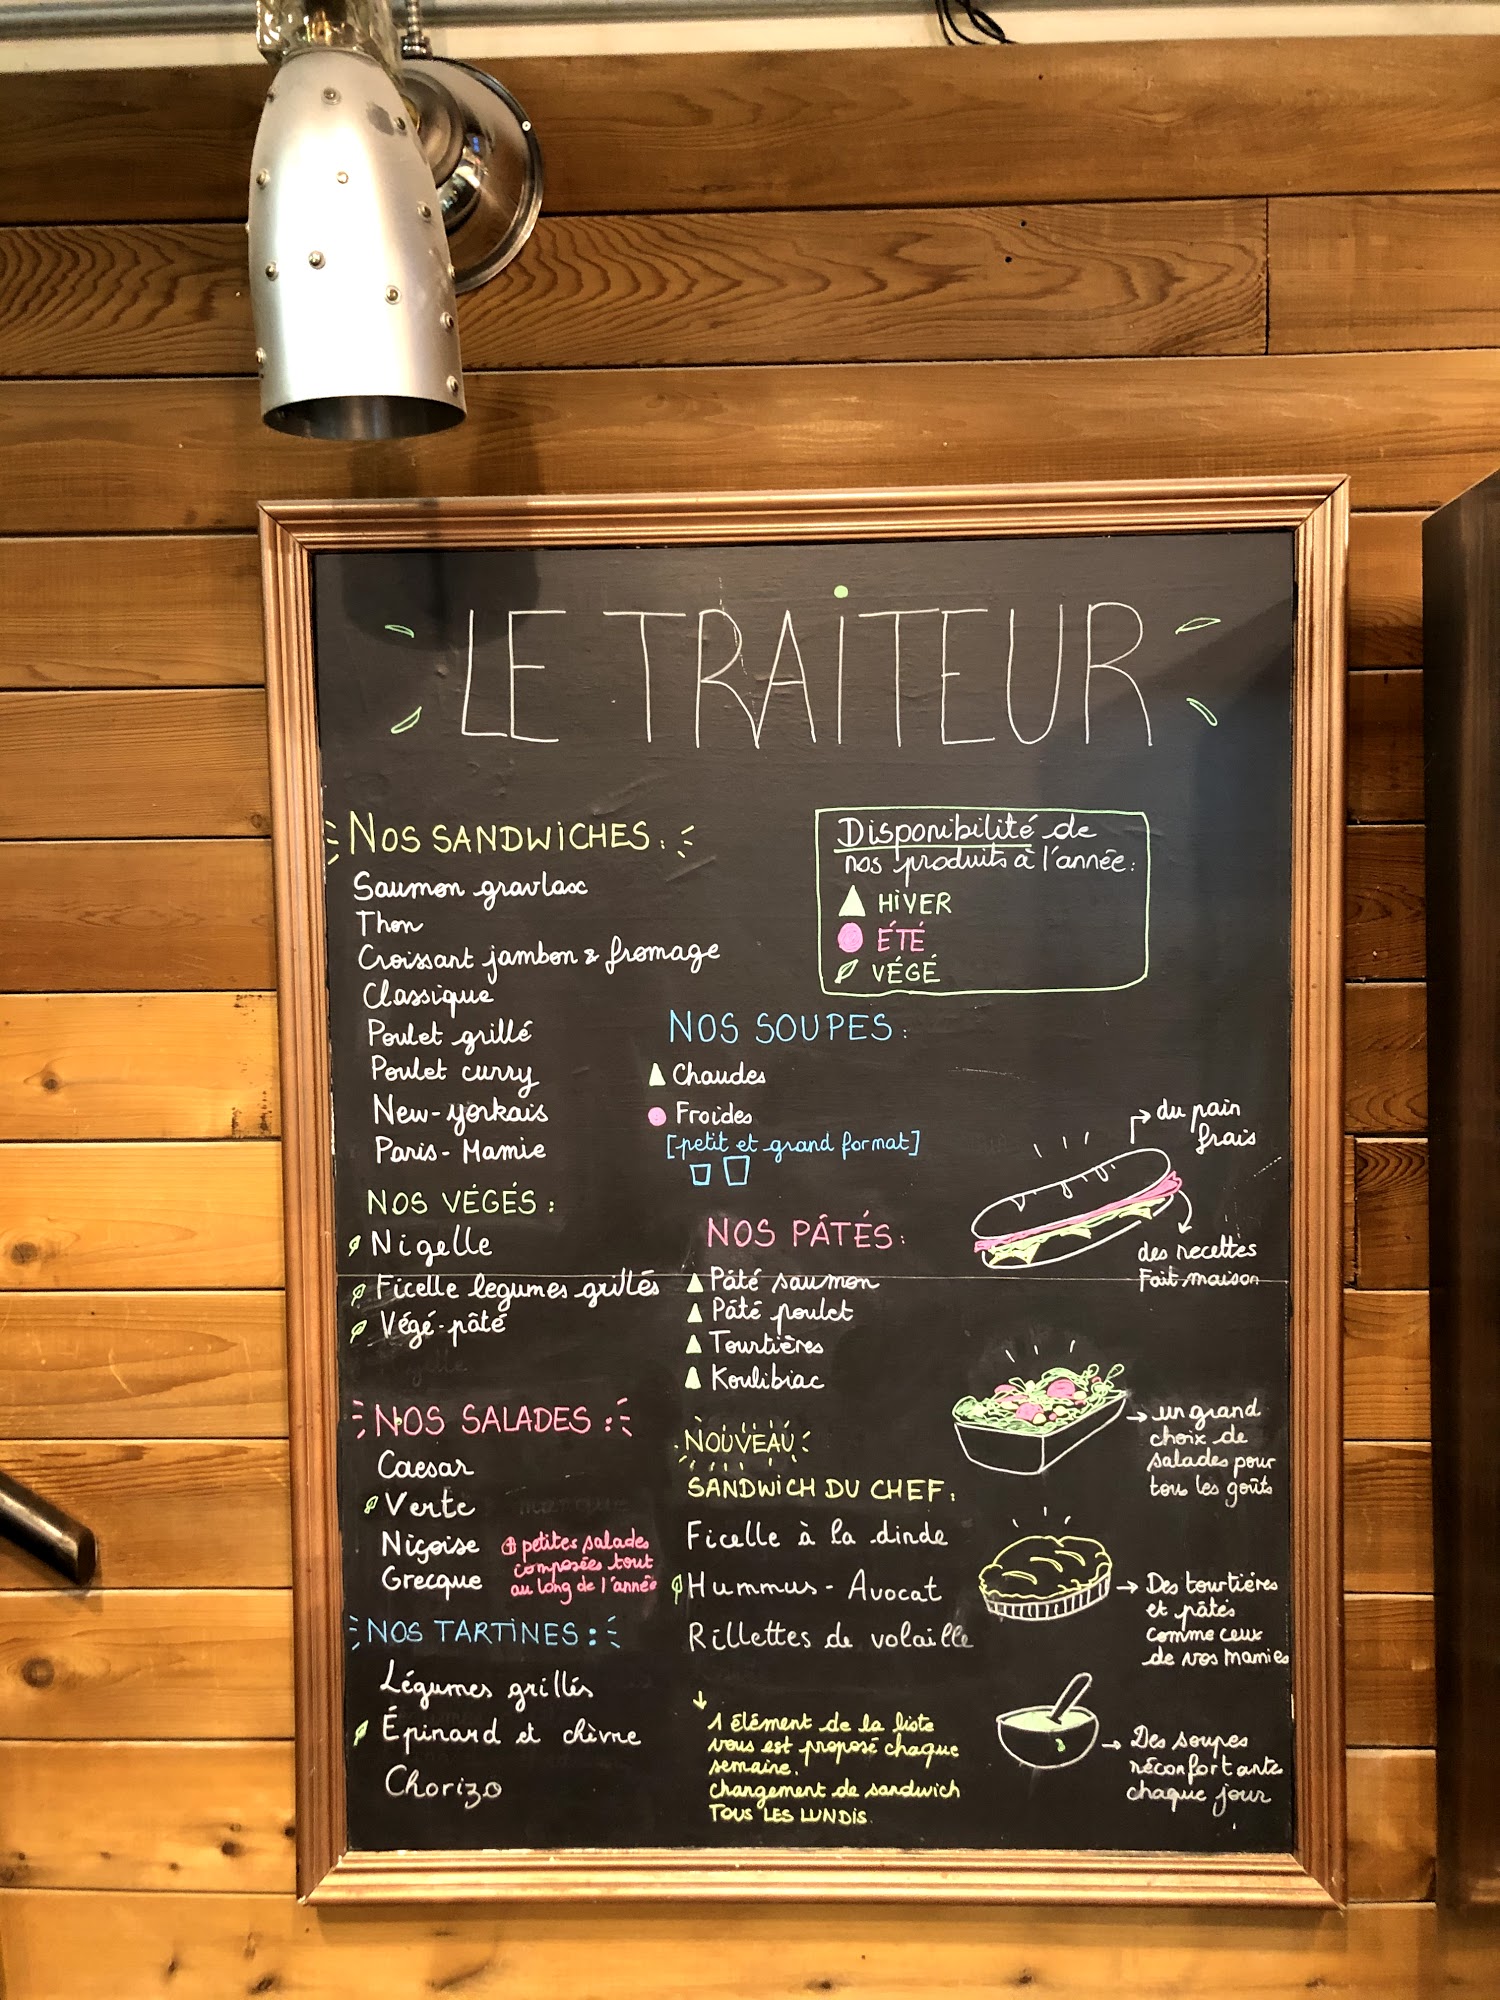 LE TRAITEUR
NOS SANDWICHES :
Saumon gravlax
Thon
Croissant jambon & fromage
Classique
Poulet grillé
Poulet curry
New-yorkais
Paris-Mamie
NOS VÉGÉS :
Nigelle
Ficelle legumes grillés
Végé-pâté
NOS SALADES :
Caesar
Verte
Niçoise
Grecque
⊕ petites salades
composées tout
au long de l'année
NOS TARTINES :
Légumes grillés
Épinard et chèvre
Chorizo
Disponibilité de
nos produits à l'année :
HIVER
ÉTÉ
VÉGÉ
NOS SOUPES :
Chaudes
Froides
[petit et grand format]
NOS PÂTÉS :
Pâté saumon
Pâté poulet
Tourtières
Koulibiac
NOUVEAU :
SANDWICH DU CHEF :
Ficelle à la dinde
Hummus - Avocat
Rillettes de volaille
↓
1 élément de la liste
vous est proposé chaque
semaine.
changement de sandwich
TOUS LES LUNDIS.
du pain
frais
des recettes
Fait maison
→ un grand
choix de
salades pour
tous les goûts
→ Des tourtières
et pâtés
comme ceux
de vos mamies
→ Des soupes
réconfortante
chaque jour